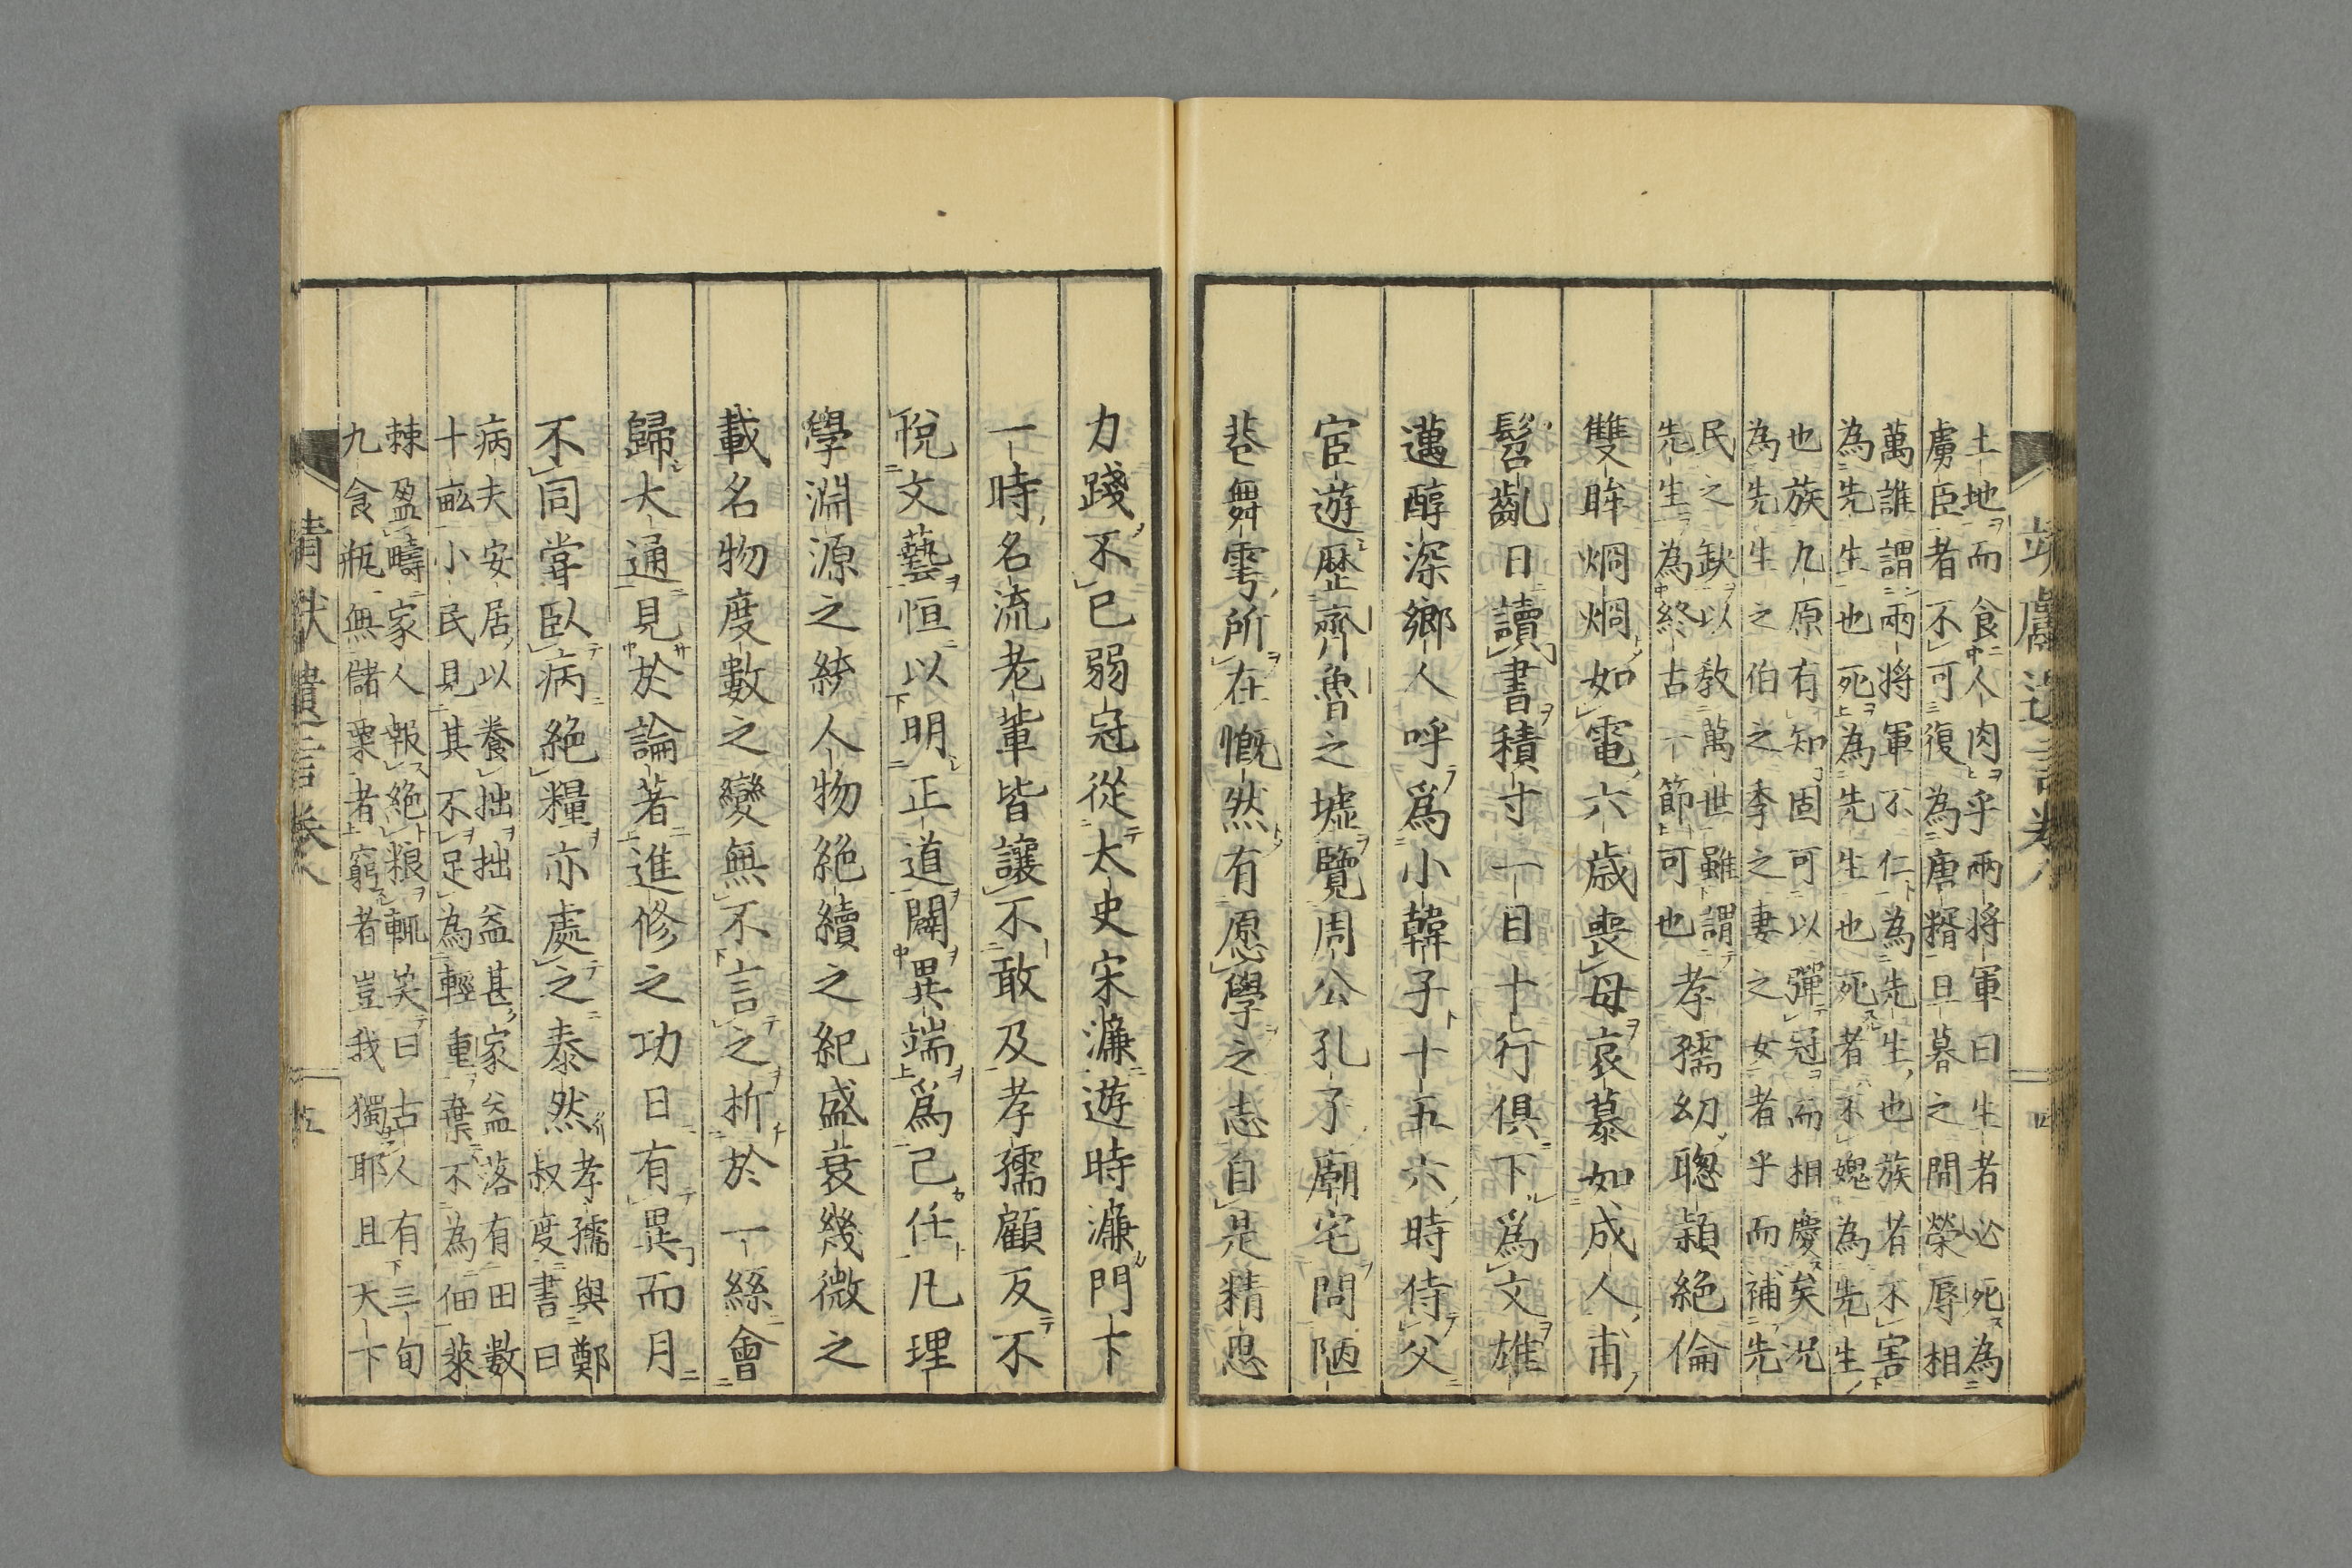 靖獻遺言卷八 四
土地而食人肉乎兩將軍曰生者必死為
虜臣者不可復為唐糈旦暮之間榮辱相
萬誰謂兩將軍不仁為先生也族者不害
為先生也死為先生也死者不媿為先生
也族九原有知固可以彈冠而相慶矣况
為先生之伯之季之妻之女者乎而補先
民之缺以教萬世雖謂
先生為終古一節可也
孝孺幼聰穎絕倫
雙眸烱烱如電六歲喪母哀慕如成人甫
髫齓日讀書積寸一目十行俱下爲文雄
邁醇深鄉人呼爲小韓子十五六時侍父
宦遊歷齊魯之墟覽周公孔子廟宅問陋
巷舞雩所在慨然有愿學之志自是精思
力踐不已弱冠從太史宋濂遊時濂門下
一時名流老輩皆讓不敢及孝孺顧反不
悅文藝恒以明正道闢異端爲己任凡理
學淵源之統人物絕續之紀盛衰幾微之
載名物度數之變無不言之折於一絲會
歸大通見於論著進修之功日有異而月
不同嘗臥病絕糧亦處之泰然
孝孺與鄭
叔度書曰
病夫安居以養拙拙益甚家益落有田數
十畝小民見其不足為輕重棄不為佃萊
棘盈疇家人報絕粮輒笑曰古人有三旬
九食瓶無儲粟者窮者豈我獨耶且天下
靖獻遺言卷八 五